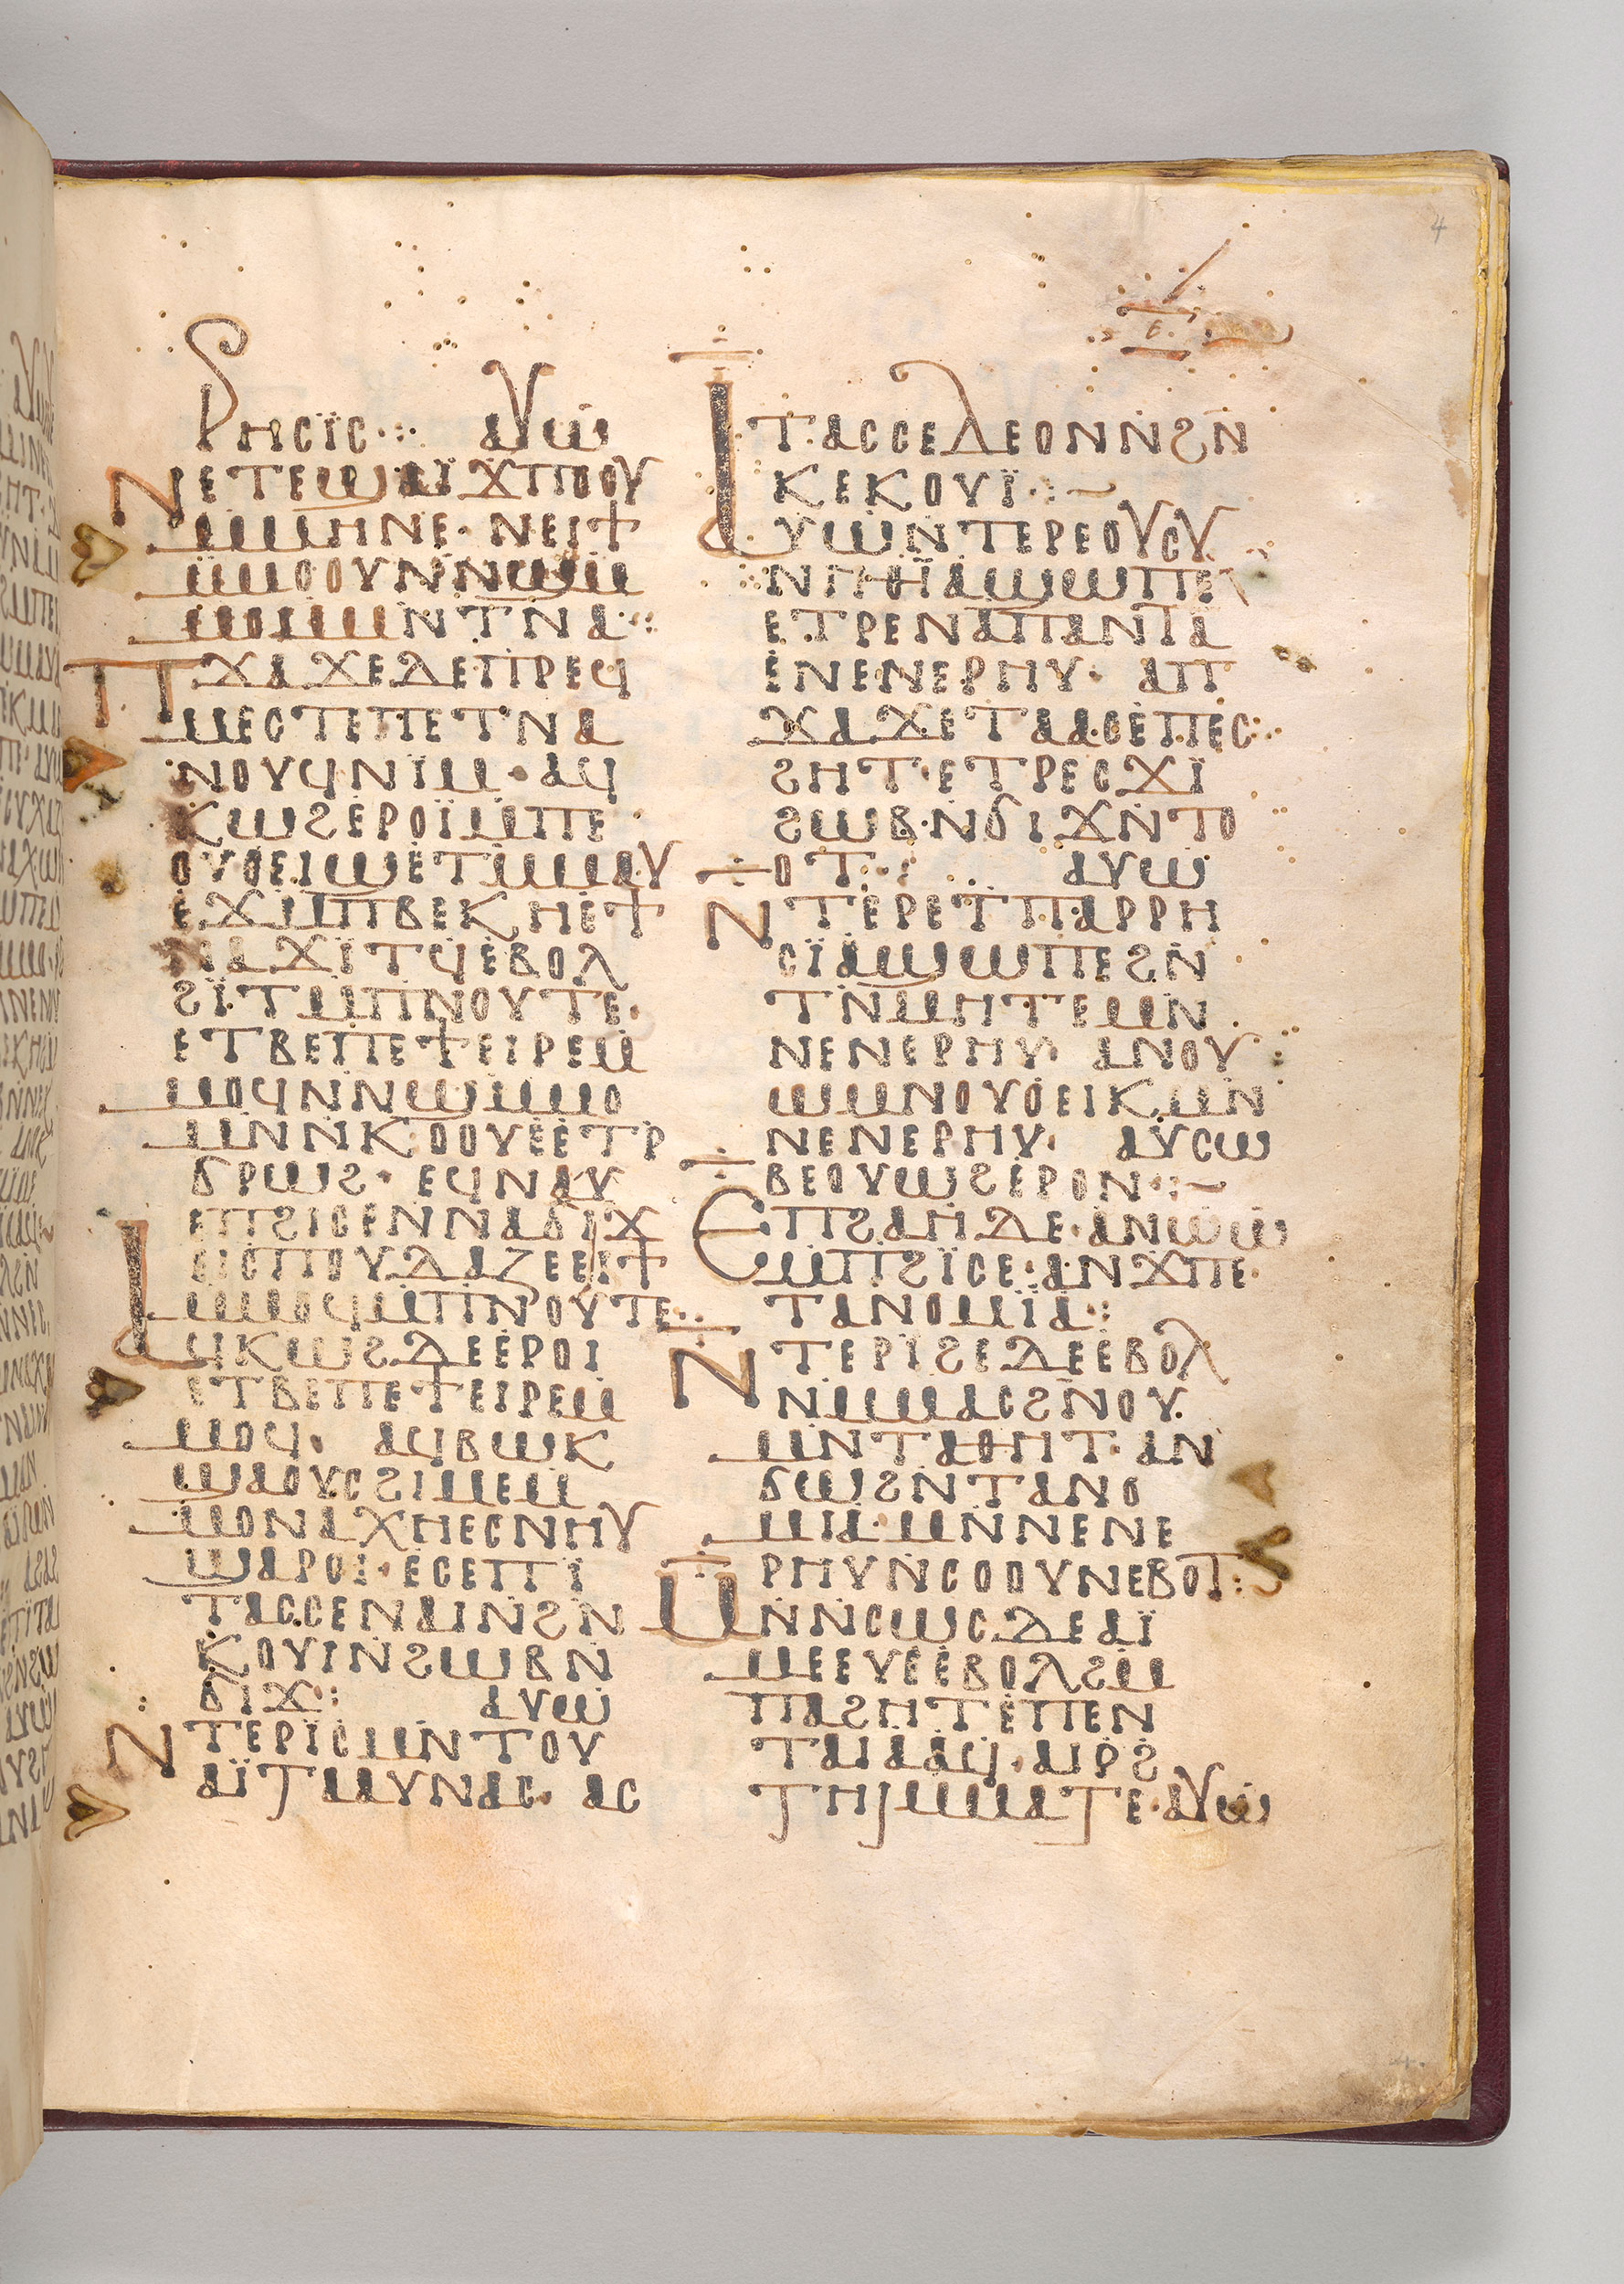 4
ⲉ
ⲣⲏⲥⲓ̈ⲥ· ⲁⲩⲱ
ⲛⲉⲧⲉϣⲁⲓ̈ϫⲡⲟⲟⲩ
ⲙⲙⲏⲛⲉ· ⲛⲉⲓϯ
ⲙⲙⲟⲟⲩⲛⲛϣⲙ
ⲙⲟⲙⲙⲛⲧⲛⲁ·
ⲡϫⲁϫⲉⲇⲉⲡⲣⲉϥ
ⲙⲉⲥⲧⲉⲡⲉⲧⲛⲁ
ⲛⲟⲩϥⲛⲓ̈ⲙ· ⲁϥ
ⲕⲱϩⲉⲣⲟⲓ̈ⲙⲡⲉ
ⲟⲩⲟⲉⲓϣⲉⲧⲙⲙⲁⲩ
ⲉϫⲓⲙⲡⲃⲉⲕⲏⲉϯ
ⲛⲁϫⲓ̈ⲧϥⲉⲃⲟⲗ
ϩⲓ̈ⲧⲙⲡⲛⲟⲩⲧⲉ·
ⲉⲧⲃⲉⲡⲉϯⲉⲓⲣⲉⲙ
ⲙⲟϥⲛⲛϣⲙⲙⲟ
ⲙⲛⲛⲕⲟⲟⲩⲉⲉⲧⲣ
ϭⲣⲱϩ· ⲉϥⲛⲁⲩ
ⲉⲡϩⲓⲥⲉⲛⲛⲁϭⲓϫ
ⲉⲓⲥⲡⲟⲩⲇⲁⲍⲉⲉⲓϯ
ⲙⲙⲟϥⲙⲡⲛⲟⲩⲧⲉ·
ⲁϥⲕⲱϩⲇⲉⲉⲣⲟⲓ
ⲉⲧⲃⲉⲡⲉϯⲉⲓⲣⲉⲙ
ⲙⲟϥ· ⲁϥⲃⲱⲕ
ϣⲁⲟⲩⲥϩⲓⲙⲉⲙ
ⲙⲟⲛⲁⲭⲏⲉⲥⲛⲏⲩ
ϣⲁⲣⲟⲓ· ⲉⲥⲉⲡⲓ̈
ⲧⲁⲥⲥⲉⲛⲁⲓⲛϩⲛ
ⲕⲟⲩⲓⲛϩⲱⲃⲛ
ϭⲓϫ: ⲁⲩⲱ
ⲛⲧⲉⲣⲓ̈ⲥⲙⲛⲧⲟⲩ
ⲁⲓ̈ⲧⲁⲁⲩⲛⲁⲥ· ⲁⲥ
ⲓⲧ·ⲁⲥⲥⲉⲇⲉⲟⲛⲛϩⲛ
ⲕⲉⲕⲟⲩⲓ̈·
ⲁⲩⲱⲛⲧⲉⲣⲉⲟⲩⲥⲩ
ⲛⲏⲑⲓ̈ⲁϣⲱⲡⲉ
ⲉⲧⲣⲉⲛⲁⲡⲁⲛⲧⲁ
ⲉⲛⲉⲛⲉⲣⲏⲩ· ⲁⲡ
ϫⲁϫⲉⲧⲁⲁⲥⲉⲡⲉⲥ
ϩⲏⲧ·ⲉⲧⲣⲉⲥϫⲓ̈
ϩⲱⲃ·ⲛϭⲓϫⲛⲧⲟ
ⲟⲧ: ⲁⲩⲱ
ⲛⲧⲉⲣⲉⲧⲡⲁⲣⲣⲏ
ⲥⲓ̈ⲁϣⲱⲡⲉϩⲛ
ⲧⲛⲙⲏⲧⲉⲙⲛ
ⲛⲉⲛⲉⲣⲏⲩ· ⲁⲛⲟⲩ
ⲱⲙⲛⲟⲩⲟⲉⲓⲕⲙⲛ
ⲛⲉⲛⲉⲣⲏⲩ· ⲁⲩⲥⲱ
ⲃⲉⲟⲩⲱϩⲉⲣⲟⲛ·
ⲉⲡϩⲁⲏⲇⲉ·ⲁⲛⲱⲱ
ⲙⲡϩⲓ̈ⲥⲉ·ⲁⲛϫⲡⲉ
ⲧⲁⲛⲟⲙⲓ̈ⲁ:
ⲛⲧⲉⲣⲓϩⲉⲇⲉⲉⲃⲟⲗ
ⲛⲙⲙⲁⲥϩⲛⲟⲩ
ⲙⲛⲧⲁⲑⲏⲧ·ⲁⲛ
ϭⲱϩⲛⲧⲁⲛⲟ
ⲙⲓⲁ·ⲙⲛⲛⲉⲛⲉ
ⲣⲏⲩⲛⲥⲟⲟⲩⲛⲉⲃⲟⲧ:
ⲙⲛⲛⲥⲱⲥⲇⲉⲁⲓ̈
ⲙⲉⲉⲩⲉⲉⲃⲟⲗϩⲙ
ⲡⲁϩⲏⲧⲉⲡⲉⲛ
ⲧⲁⲓⲁⲁϥ·ⲁⲓⲣϩ
ⲧⲏⲓⲙⲙⲁⲧⲉ·ⲁⲩⲱ